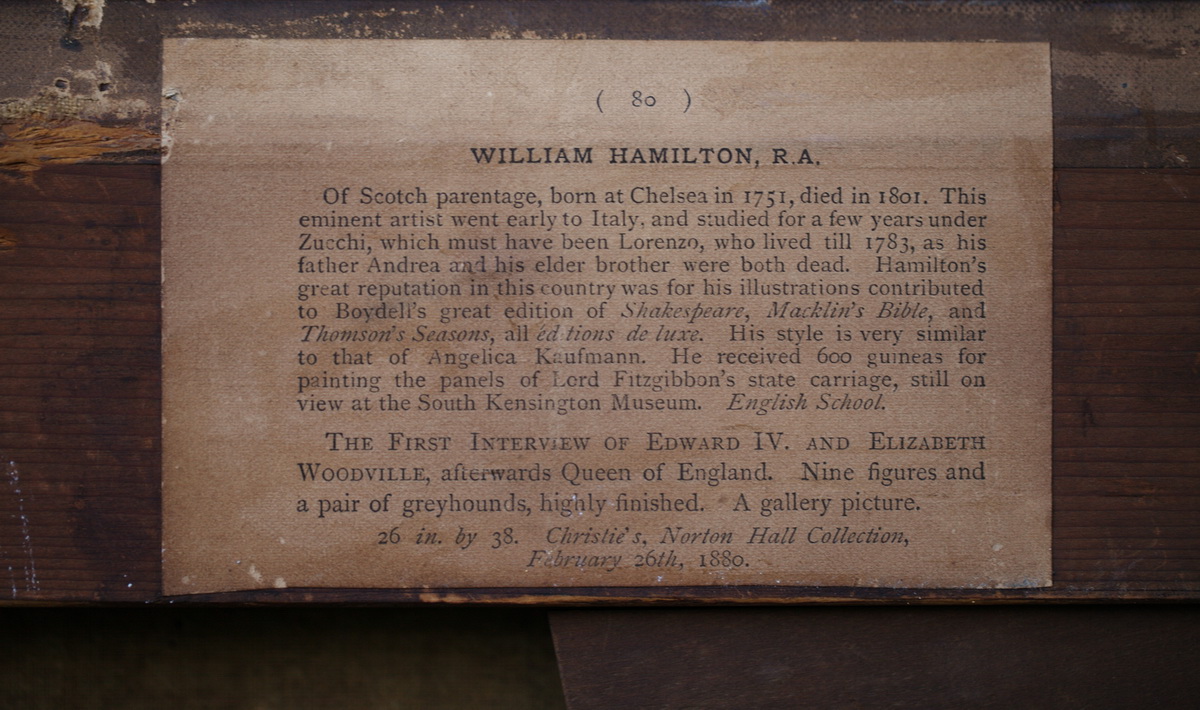 ( 80 )
WILLIAM HAMILTON, R.A.
Of Scotch parentage, born at Chelsea in 1751, died in 1801. This
eminent artist went early to Italy, and studied for a few years under
Zucchi, which must have been Lorenzo, who lived till 1783, as his
father Andrea and his elder brother were both dead. Hamilton's
great reputation in this country was for his illustrations contributed
to Boydell's great edition of Shakespeare, Macklin's Bible, and
Thomson's Seasons, all éditions de luxe. His style is very similar
to that of Angelica Kaufmann. He received 600 guineas for
painting the panels of Lord Fitzgibbon's state carriage, still on
view at the South Kensington Museum. English School.
THE FIRST INTERVIEW OF EDWARD IV. AND ELIZABETH
WOODVILLE, afterwards Queen of England. Nine figures and
a pair of greyhounds, highly finished. A gallery picture.
26 in. by 38. Christie's, Norton Hall Collection,
February 26th, 1880.